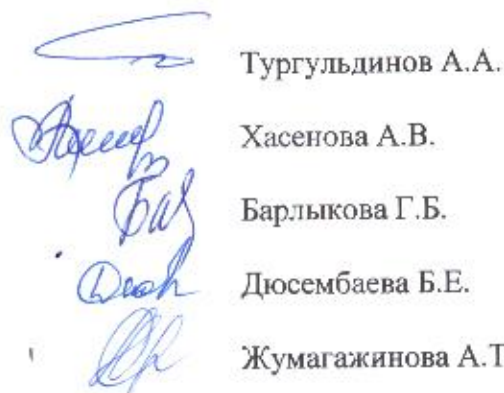 Тургульдинов А.А.
Хасенова А.В.
Барлыкова Г.Б.
Дюсембаева Б.Е.
Жумагажинова А.Т